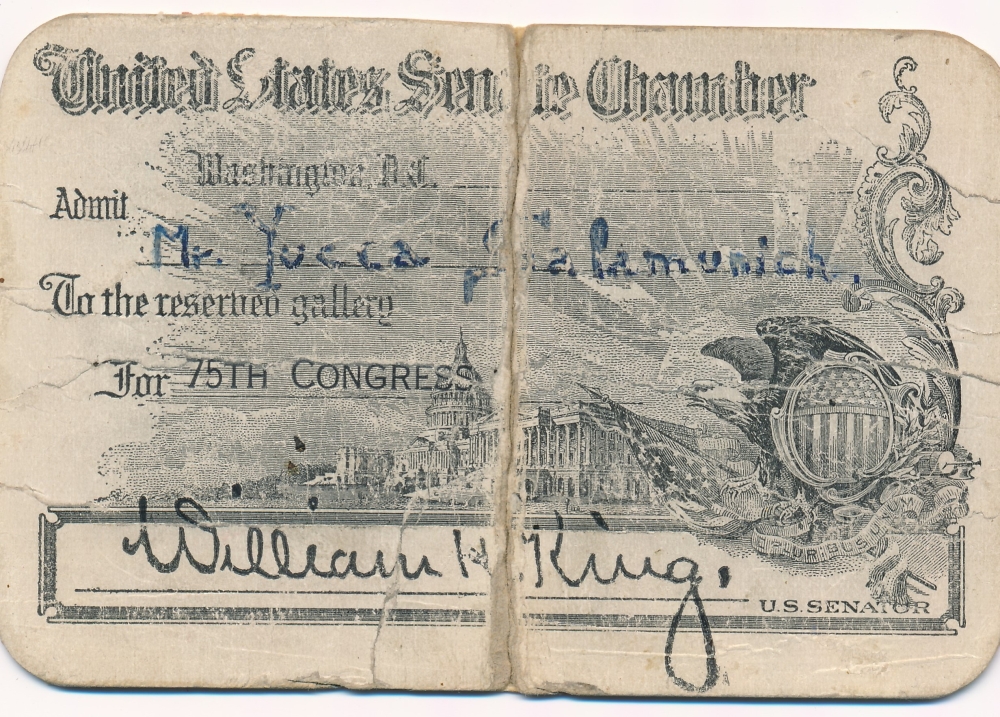 United States Senate Chamber
Washington, D.C.
Admit Mr. Yucca Salamunich.
To the reserved gallery
For 75TH CONGRESS
E PLURIBUS UNUM
William H. King.
U.S. SENATOR